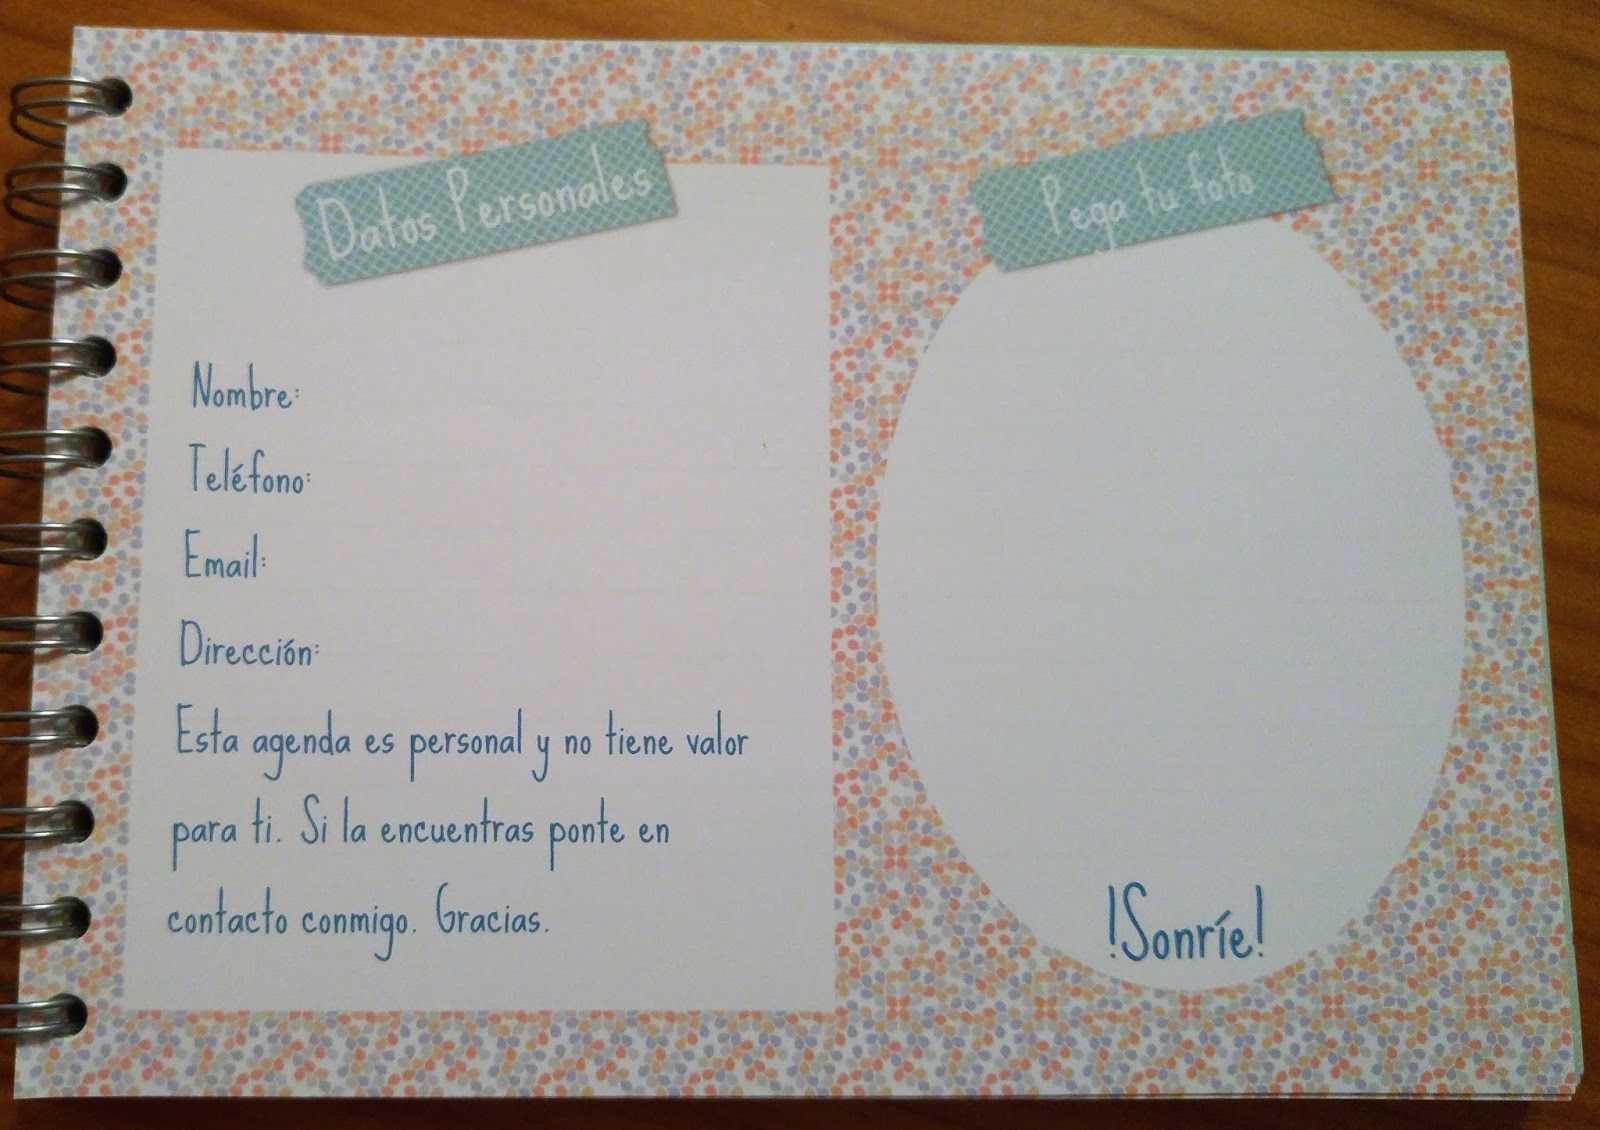 Datos Personales
Nombre:
Teléfono:
Email:
Dirección:
Esta agenda es personal y no tiene valor
para ti. Si la encuentras ponte en
contacto conmigo. Gracias.
Pega tu foto
!Sonríe!